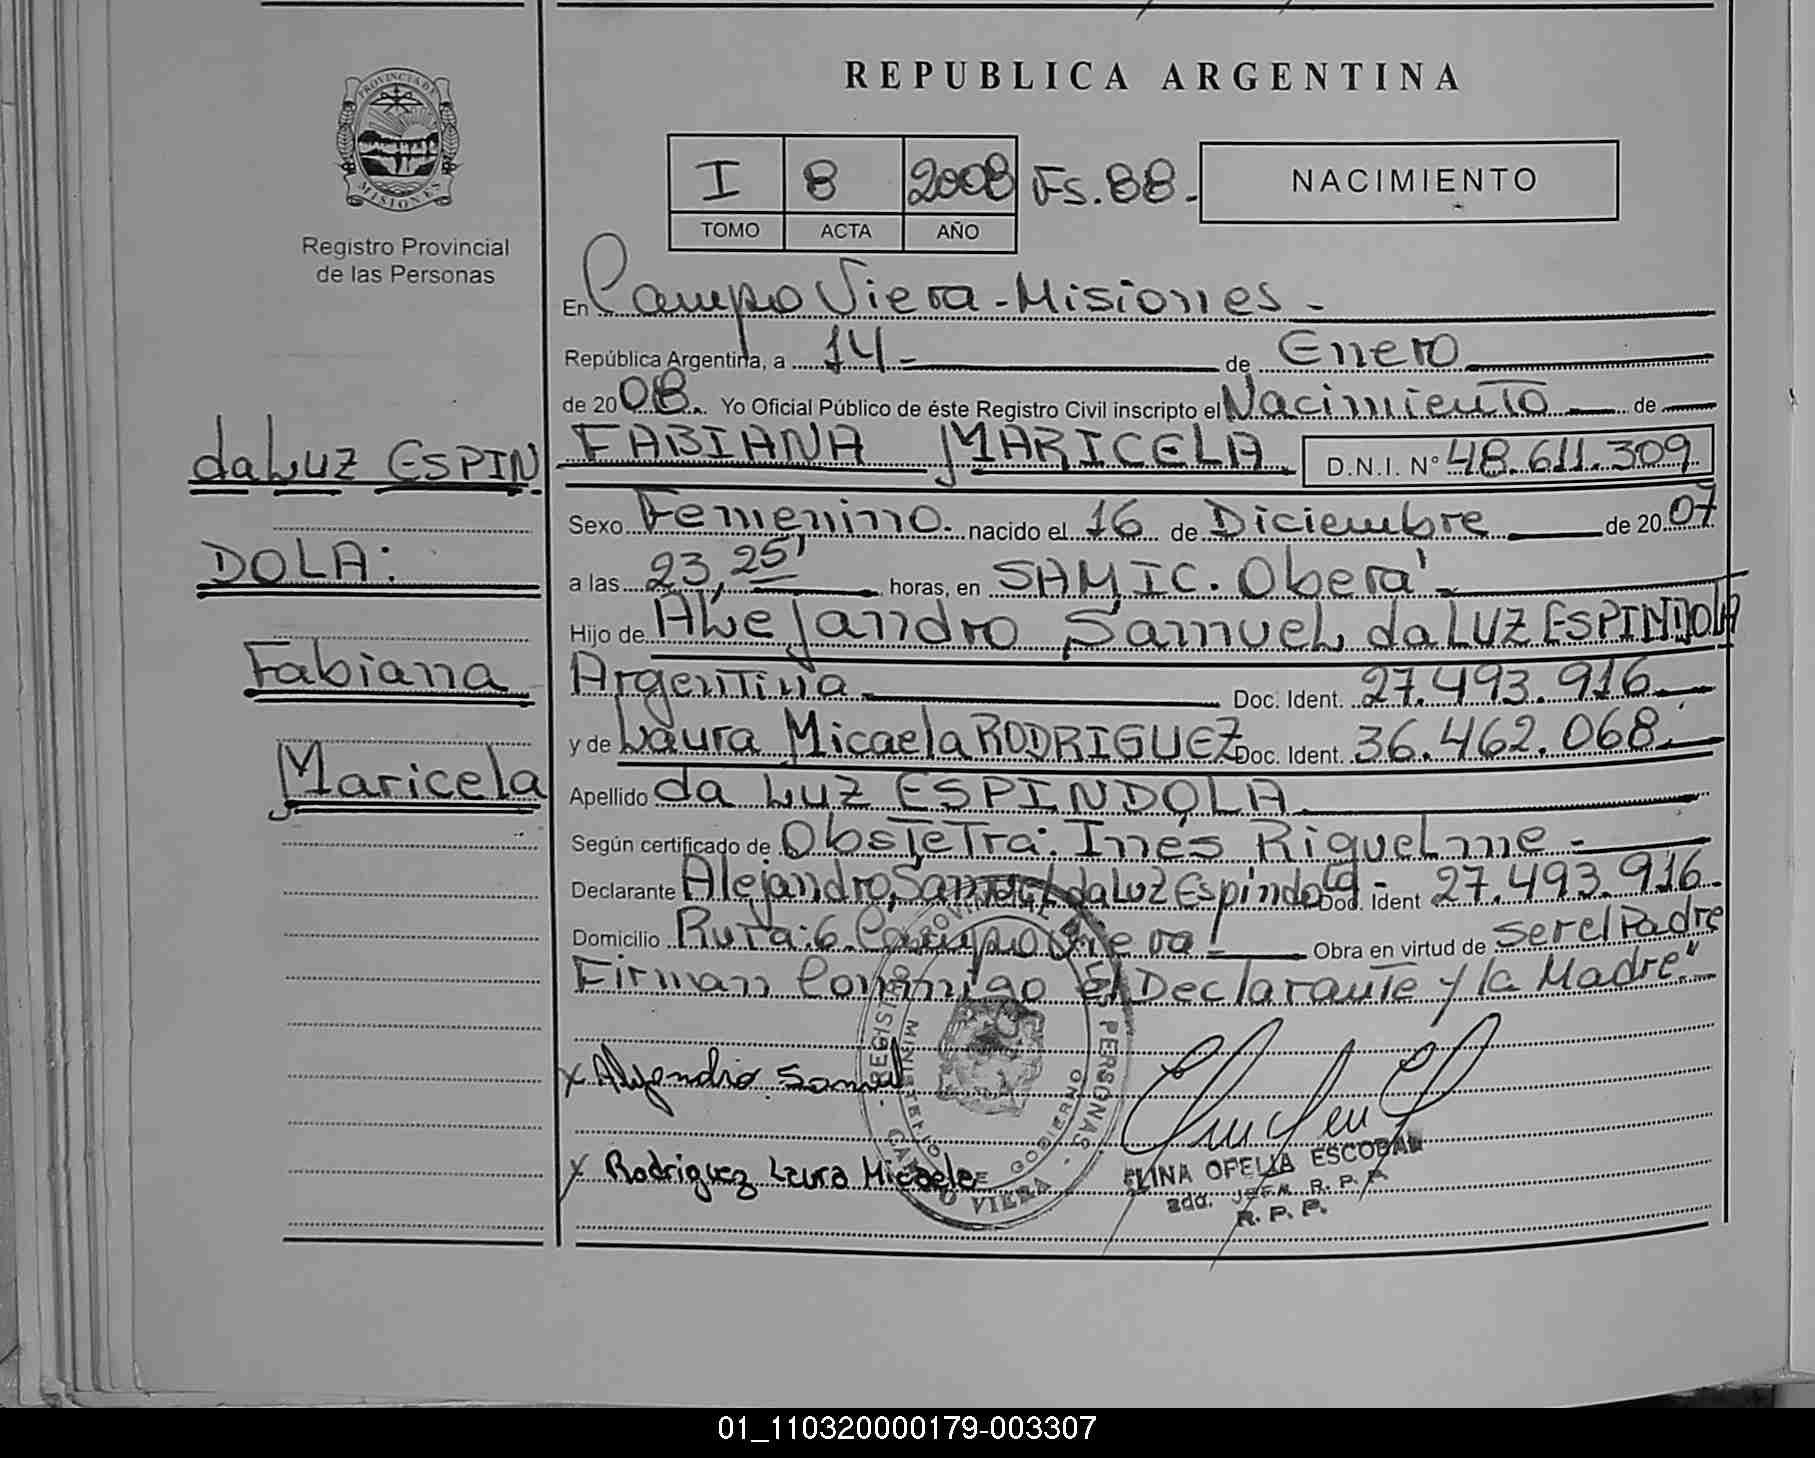 REPUBLICA ARGENTINA
PROVINCIA DE MISIONES
Registro Provincial
de las Personas
I 8 2008 Fs. 88.-
TOMO ACTA AÑO
NACIMIENTO
En Campo Viera - Misiones -
República Argentina, a 14 - de Enero
de 2008. Yo Oficial Público de éste Registro Civil inscripto el Nacimiento de
FABIANA MARICELA D.N.I. N° 48.611.309
Sexo Femenino. nacido el 16 de Diciembre de 2007
a las 23,25' horas, en SAMIC. Oberá
Hijo de Alejandro Samuel da LUZ ESPINDOLA
Argentina Doc. Ident. 27.493.916
y de Laura Micaela RODRIGUEZ Doc. Ident. 36.462.068.
Apellido da LUZ ESPINDOLA
Según certificado de Obstetra: Inés Riquelme -
Declarante Alejandro Samuel da Luz Espindola - Doc. Ident 27.493.916
Domicilio Ruta: 6 Campo Viera! Obra en virtud de ser el Padre
Firman Conmigo El Declarante y la Madre"
da LUZ ESPIN
DOLA:
Fabiana
Maricela
x Alejandro Samuel
x Rodriguez Laura Micaela
REGISTRO PROVINCIAL DE LAS PERSONAS
MINISTERIO DE GOBIERNO
CAMPO VIERA
ELINA OFELIA ESCOBAR
2da. JEFA R. P. P.
R. P. P.
01_110320000179-003307